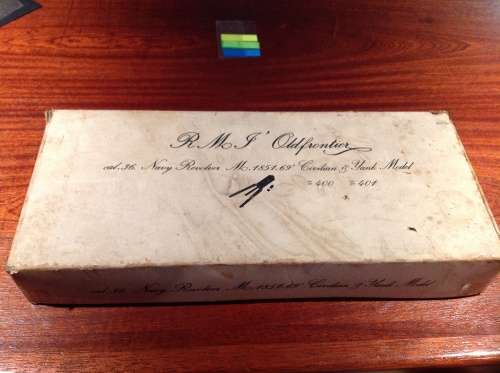 R M I' Oldfrontier
cal. 36. Navy Revolver M. 1851.69' Civilian & Yank Model
= 400 = 401
cal. 36. Navy Revolver M. 1851.69' Civilian & Yank Model